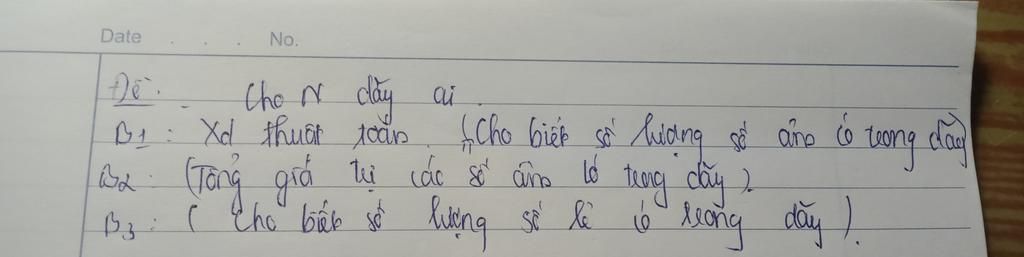 Date . . . No.
Đề. - Cho N dãy ai.
B1: Xd thuật toán. (Cho biết số lượng số âm có trong dãy)
B2: (Tổng giá trị các số âm có trong dãy).
B3: ( Cho biết số lượng số lẻ có trong dãy ).